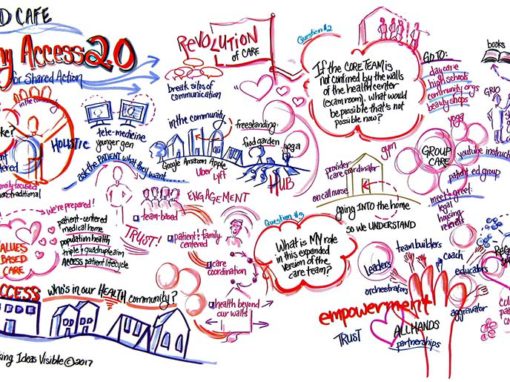 D CAFE
Access 2.0
for Shared Action
in the community
HOLISTIC
tele-medicine
younger gen
ASK the PATIENT what they want
we're prepared!
patient-centered
medical home
population health
triple & quadruple aim
Access patient lifecycle
VALUES
BASED
CARE
ACCESS
who's in our HEALTH community?
ing Ideas Visible © 2017
REVOLUTION
OF CARE
break silos of
communication
in the community
freestanding
food garden
yoga
gym
Google Amazon Apple
Uber Lyft
HUB
ENGAGEMENT
team-based
TRUST!
patient & family
centered
care
coordination
health beyond
our walls
Question #2
IF the CORE TEAM is
not confined by the walls
of the health center
(exam room), what would
be possible that's not
possible now?
GO TO:
day care
high schools
community orgs
beauty shops
books
GROUP
CARE
yoga
youtube instruct
patient ed group
meet & greet
legal
housing
relief
provider
care coordinator
on call nurse
going INTO the home
so we UNDERSTAND
Question #3
What is MY role
in this expanded
version of the
care team?
team builders
coach
educators
Leaders
orchestrators
empowerment
TRUST
ALL HANDS
partnerships